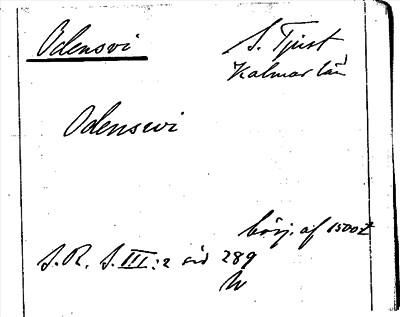 Odensvi
S. Tjust
Kalmar län
Odenswi
börj. af 1500 t
S.R. S. III:2 sid 289
W